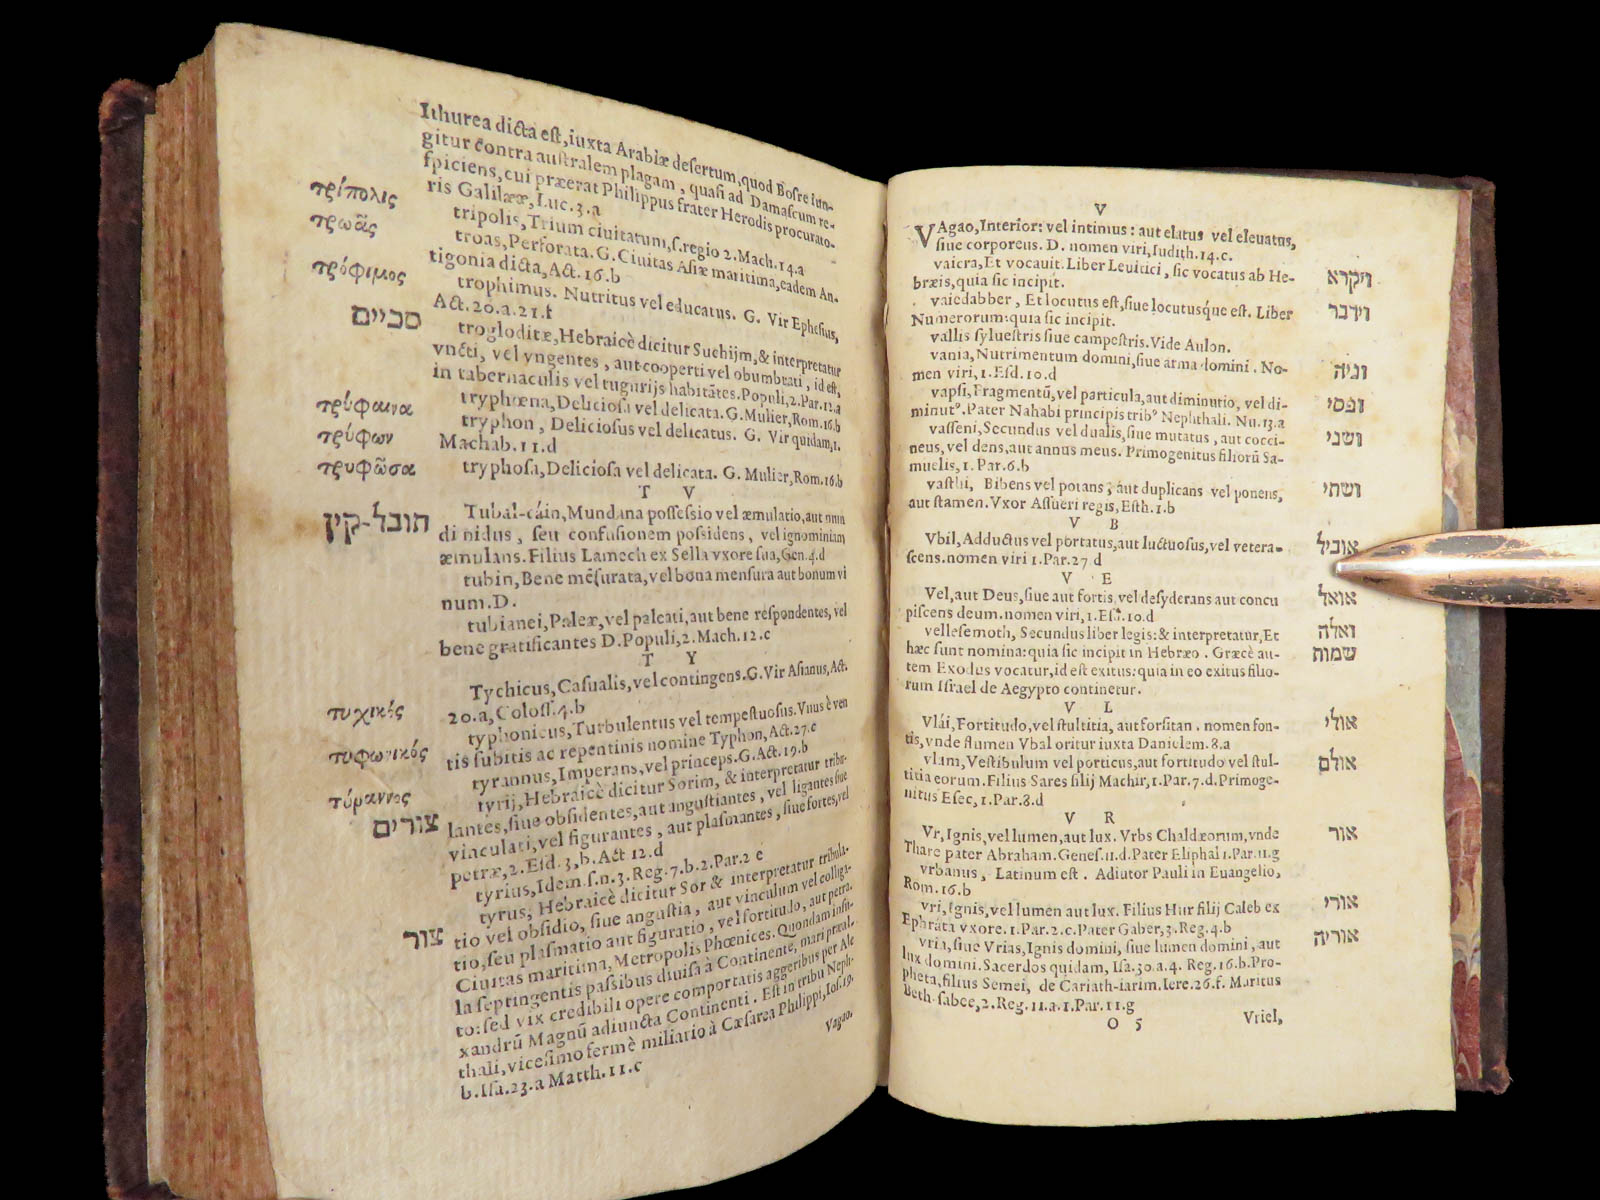 Ithurea dicta est, iuxta Arabiæ desertum, quod Bosre iun-
gitur contra australem plagam, quasi ad Damascum re-
spiciens, cui præerat Philippus frater Herodis procurato-
ris Galilææ, Luc. 3. a
τρίπολις tripolis, Trium ciuitatum, s. regio 2. Mach. 14. a
τρωὰς troas, Perforata. G. Ciuitas Asiæ maritima, eadem An-
tigonia dicta, Act. 16. b
τρόφιμος trophimus. Nutritus vel educatus. G. Vir Ephesius,
Act. 20. a. 21. f
סכיים troglodite, Hebraicè dicitur Suchijm, & interpretatur
vncti, vel vngentes, aut cooperti vel obumbrati, id est,
in tabernaculis vel tugurijs habitātes. Populi, 2. Par. 12. a
τρύφαινα tryphœna, Deliciosa vel delicata. G. Mulier, Rom. 16. b
τρύφων tryphon, Deliciosus vel delicatus. G. Vir quidam, 1.
Machab. 11. d
τρυφῶσα tryphosa, Deliciosa vel delicata. G. Mulier, Rom. 16. b
T V
תובל-קין Tubal-cáin, Mundana possessio vel æmulatio, aut mun
di nidus, seu confusionem possidens, vel ignominiam
æmulans. Filius Lamech ex Sella vxore sua, Gen. 4. d
tubin, Bene mēsurata, vel bona mensura aut bonum vi
num. D.
tubianei, Paleæ, vel paleati, aut bene respondentes, vel
bene gratificantes D. Populi, 2. Mach. 12. c
T Y
τυχικός Tychicus, Casualis, vel contingens. G. Vir Asianus, Act.
20. a, Coloss. 4. b
τυφωνικός typhonicus, Turbulentus vel tempestuosus. Vnus è ven
tis subitis ac repentinis nomine Typhon, Act. 27. c
τύραννος tyrannus, Imperans, vel princeps. G. Act. 19. b
צורים tyrij, Hebraicè dicitur Sorim, & interpretatur tribu-
lantes, siue obsidentes, aut angustiantes, vel ligantes siue
vinculati, vel figurantes, aut plasmantes, siue fortes, vel
petræ, 2. Esd. 3, b. Act 12. d
tyrius, Idem. s. n. 3. Reg. 7. b. 2. Par. 2 c
צור tyrus, Hebraicè dicitur Sor & interpretatur tribula-
tio vel obsidio, siue angustia, aut vinculum vel colliga-
tio, seu plasmatio aut figuratio, vel fortitudo, aut petra.
Ciuitas maritima, Metropolis Phœnices. Quondam insu-
la septingentis passibus diuisa à Continente, mari præal-
to: sed vix credibili opere comportatis aggeribus per Ale
xandrū Magnū adiuncta Continenti. Est in tribu Neph-
thali, vicesimo fermè miliario à Cæsarea Philippi, Ios. 19.
b. Isa. 23. a Matth. 11. c
Vagao,
V
VAgao, Interior: vel intimus: aut elatus vel eleuatus,
siue corporeus. D. nomen viri, Iudith. 14. c.
vaicra, Et vocauit. Liber Leuitici, sic vocatus ab He- ויקרא
bræis, quia sic incipit.
vaiedabber, Et locutus est, siue locutusq́ue est. Liber וידבר
Numerorum: quia sic incipit.
vallis syluestris siue campestris. Vide Aulon.
vania, Nutrimentum domini, siue arma domini. No- וניה
men viri, 1. Esd. 10. d
vapsi, Fragmentū, vel particula, aut diminutio, vel di- ופסי
minutꝰ. Pater Nahabi principis tribꝰ Nephthali. Nu. 13. a
vasseni, Secundus vel dualis, siue mutatus, aut cocci- ושני
neus, vel dens, aut annus meus. Primogenitus filiorū Sa-
muelis, 1. Par. 6. b
vasthi, Bibens vel potans; aut duplicans vel ponens, ושתי
aut stamen. Vxor Assueri regis, Esth. 1. b
V B
Vbil, Adductus vel portatus, aut luctuosus, vel vetera- אוביל
scens. nomen viri 1. Par. 27 d
V E
Vel, aut Deus, siue aut fortis, vel desyderans aut concu אואל
piscens deum. nomen viri, 1. Esd. 10. d
vellesemoth, Secundus liber legis: & interpretatur, Et ואלה
hæc sunt nomina: quia sic incipit in Hebræo. Græcè au- שמות
tem Exodus vocatur, id est exitus: quia in eo exitus filio-
rum Israel de Aegypto continetur.
V L
Vlái, Fortitudo, vel stultitia, aut forsitan. nomen fon- אולי
tis, vnde flumen Vbal oritur iuxta Danielem. 8. a
vlam, Vestibulum vel porticus, aut fortitudo vel stul- אולם
titia eorum. Filius Sares filij Machir, 1. Par. 7. d. Primoge-
nitus Esec, 1. Par. 8. d
V R
Vr, Ignis, vel lumen, aut lux. Vrbs Chaldæorum, vnde אור
Thare pater Abraham. Genes. 11. d. Pater Eliphal 1. Par. 11. g
vrbanus, Latinum est. Adiutor Pauli in Euangelio,
Rom. 16. b
vri, Ignis, vel lumen aut lux. Filius Hur filij Caleb ex אורי
Ephrata vxore. 1. Par. 2. c. Pater Gaber, 3. Reg. 4. b
vria, siue Vrias, Ignis domini, siue lumen domini, aut אוריה
lux domini. Sacerdos quidam, Isa. 30. a. 4. Reg. 16. b. Pro-
pheta, filius Semei, de Cariath-iarim. Iere. 26. f. Maritus
Beth-sabee, 2. Reg. 11. a. 1. Par. 11. g
O 5 Vriel,